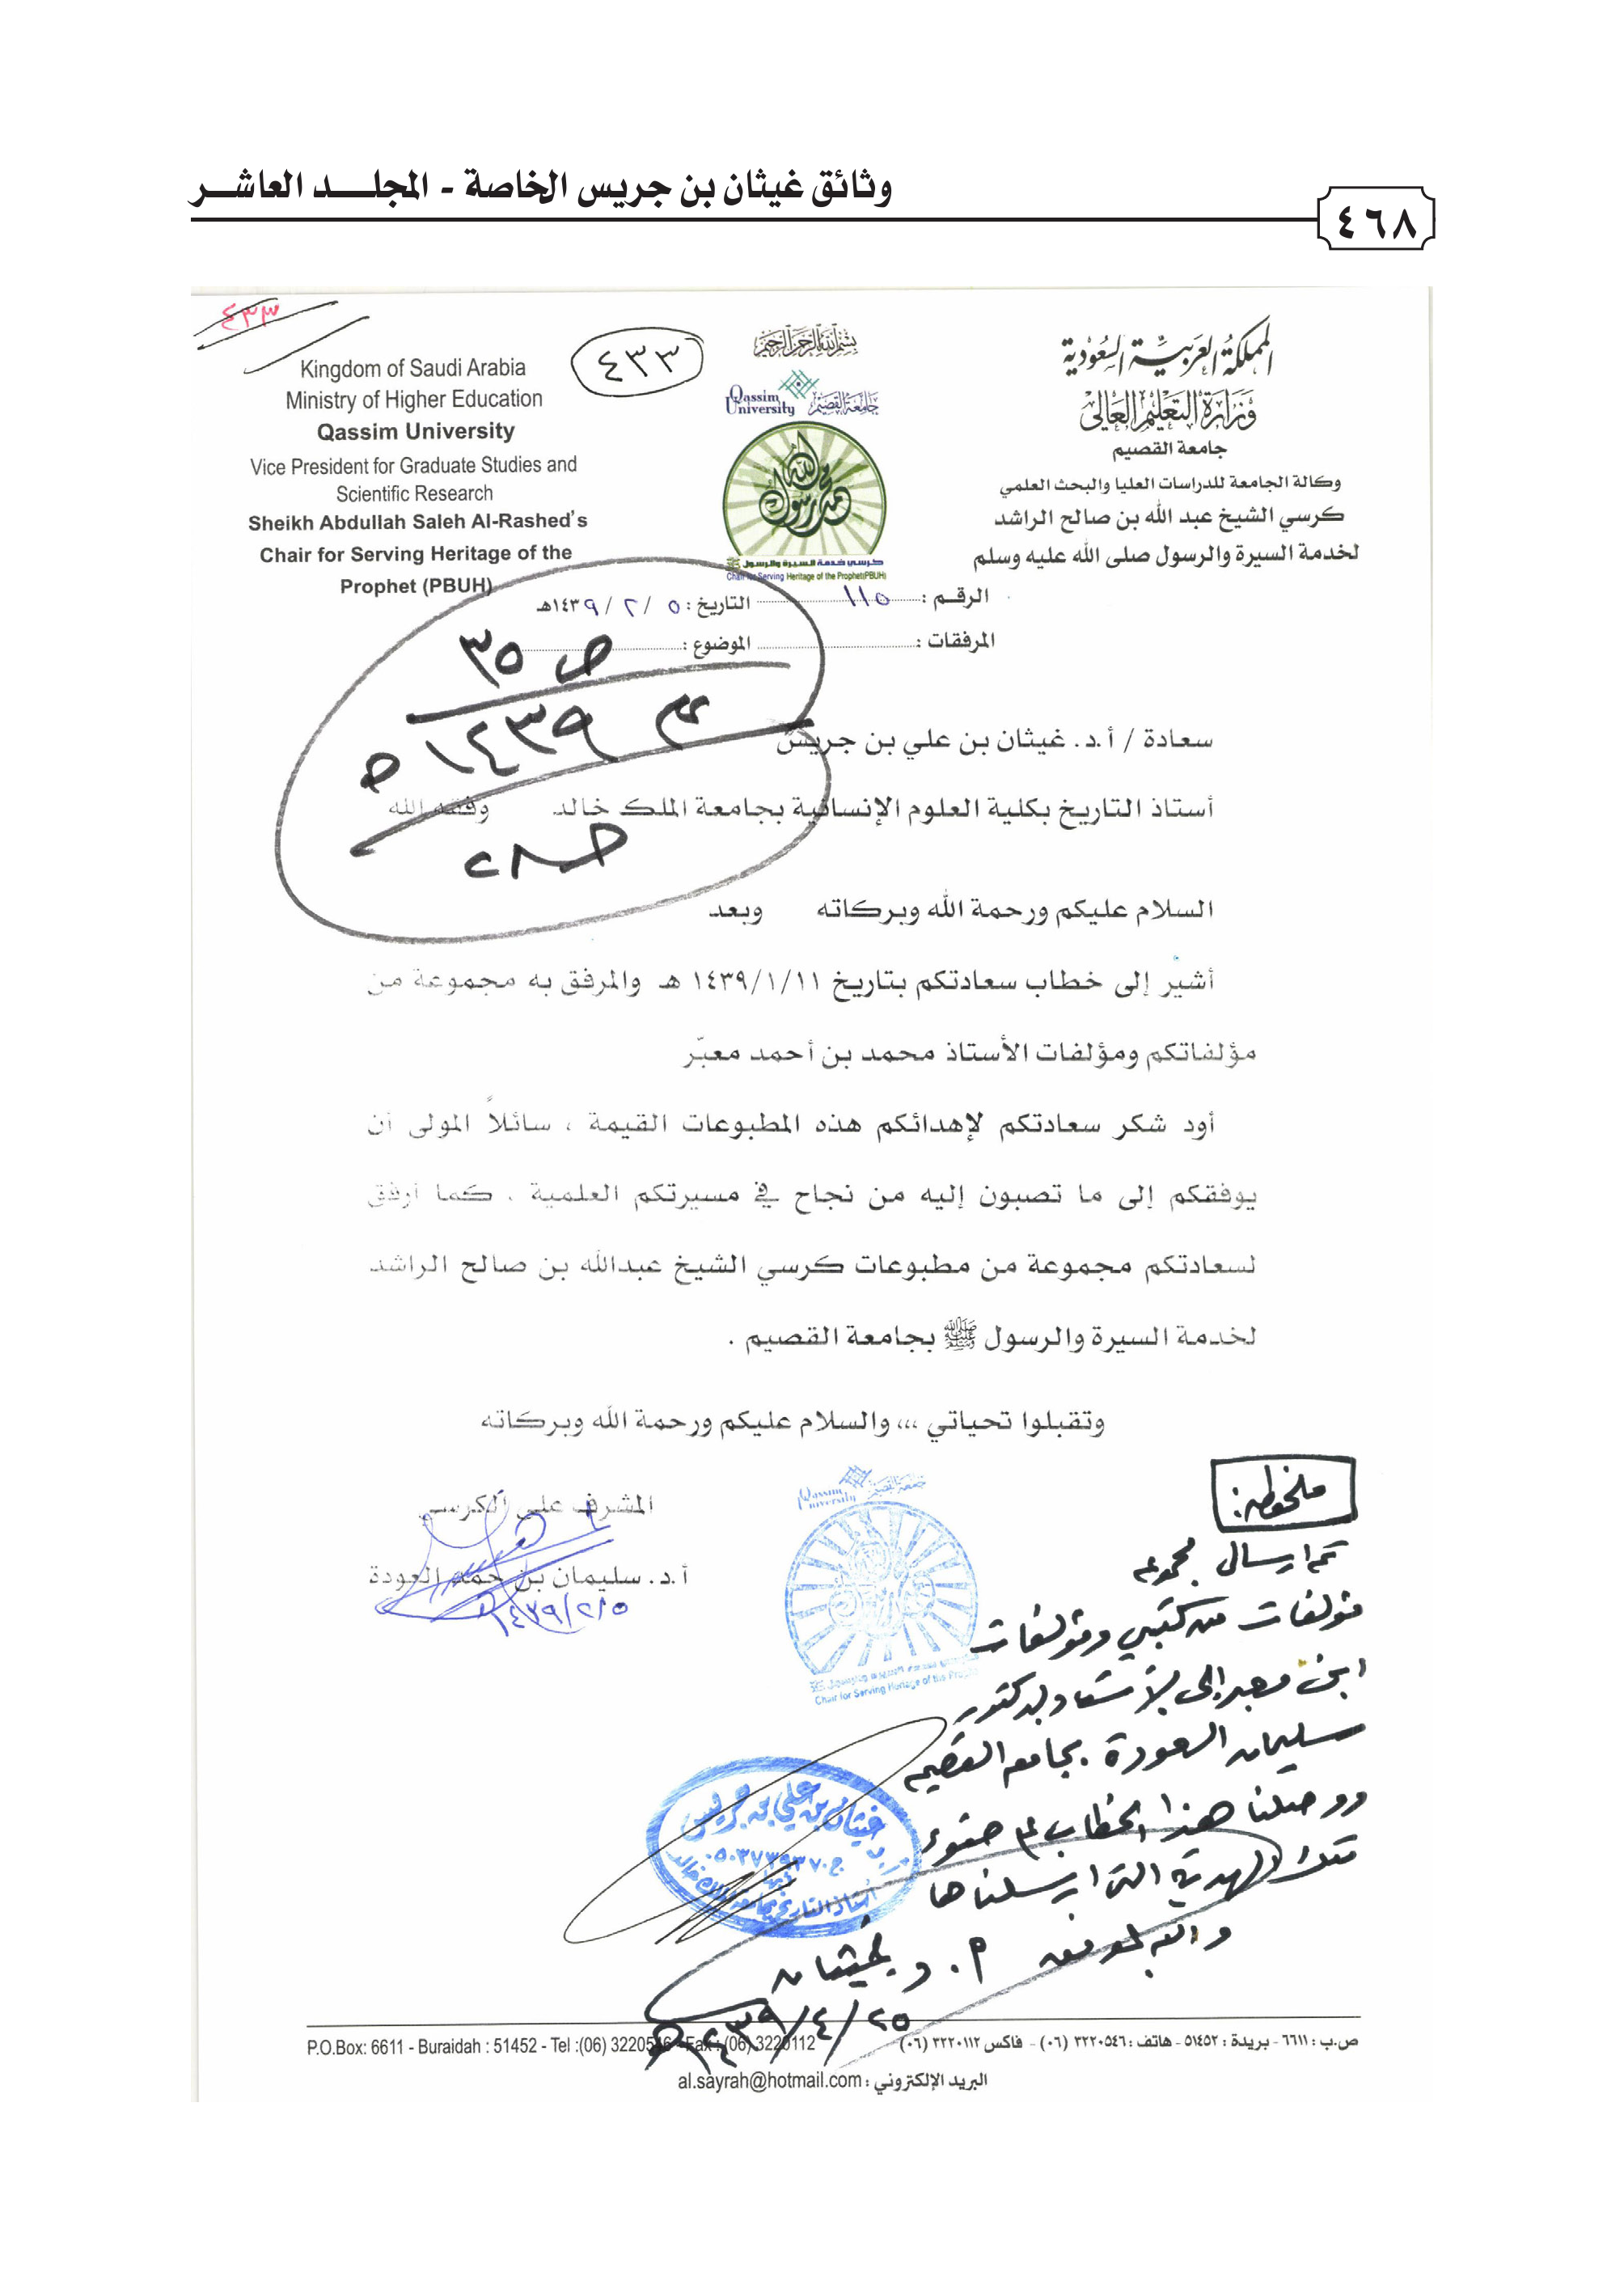 وثائق غيثان بن جريس الخاصة - المجلــد العاشــر
٤٦٨
٤٣٣
٤٣٣
بسم الله الرحمن الرحيم
المملكة العربية السعودية
وزارة التعليم العالي
جامعة القصيم
وكالة الجامعة للدراسات العليا والبحث العلمي
كرسي الشيخ عبد الله بن صالح الراشد
لخدمة السيرة والرسول صلى الله عليه وسلم
Qassim University جامعة القصيم
محمد رسول الله
كرسي خدمة السيرة والرسول ﷺ
Chair for Serving Heritage of the Prophet(PBUH)
Kingdom of Saudi Arabia
Ministry of Higher Education
Qassim University
Vice President for Graduate Studies and
Scientific Research
Sheikh Abdullah Saleh Al-Rashed's
Chair for Serving Heritage of the
Prophet (PBUH)
الرقم : ١١٥ التاريخ : ٥ / ٢ / ١٤٣٩هـ
المرفقات : الموضوع :
ص ٣٥
١٤٣٩ هـ
سعادة / أ.د. غيثان بن علي بن جريس
أستاذ التاريخ بكلية العلوم الإنسانية بجامعة الملك خالد وفقه الله
السلام عليكم ورحمة الله وبركاته وبعد
أشير إلى خطاب سعادتكم بتاريخ ١٤٣٩/١/١١ هـ والمرفق به مجموعة من
مؤلفاتكم ومؤلفات الأستاذ محمد بن أحمد معبّر
أود شكر سعادتكم لإهدائكم هذه المطبوعات القيمة ، سائلاً المولى أن
يوفقكم إلى ما تصبون إليه من نجاح في مسيرتكم العلمية . كما أرفق
لسعادتكم مجموعة من مطبوعات كرسي الشيخ عبدالله بن صالح الراشد
لخدمة السيرة والرسول ﷺ بجامعة القصيم .
وتقبلوا تحياتي ،،، والسلام عليكم ورحمة الله وبركاته
المشرف على الكرسي
أ.د. سليمان بن حمد العودة
١٤٣٩/٢/٥
Qassim University جامعة القصيم
Chair for Serving Heritage of the Prophet
ملحوظة :
تم ارسال مجموعة
مؤلفات من كتبي ومؤلفات
ابن معبر إلى الأستاذ الدكتور
سليمان العودة بجامعة القصيم
ووصلنا هذا الخطاب في ضوء
تلك الهدية التي ارسلناها
والله الموفق أ. د غيثان
٢٥/٤/١٤٣٩هـ
غيثان بن علي بن جريس
أستاذ التاريخ بجامعة الملك خالد
ص.ب : ٦٦١١ - بريدة : ٥١٤٥٢ - هاتف : ٣٢٢٠٥٤٦ (٠٦) - فاكس ٣٢٢٠١١٢ (٠٦)
P.O.Box: 6611 - Buraidah : 51452 - Tel :(06) 3220546 - Fax : (06) 3220112
البريد الإلكتروني : al.sayrah@hotmail.com